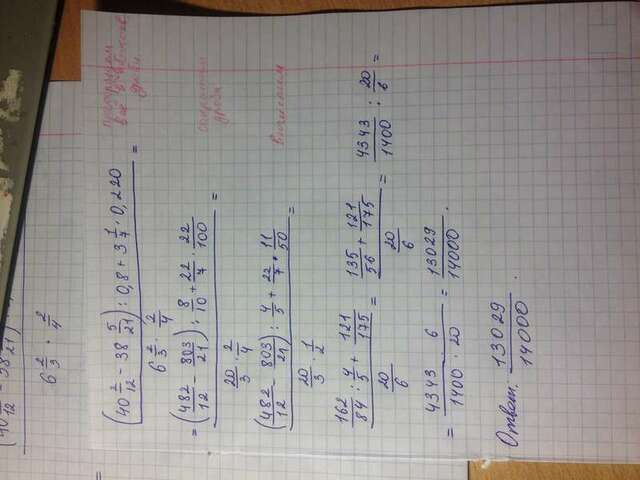 6 2/3 · 2/4
=
(40 2/12 - 38 5/21) : 0,8 + 3 1/7 · 0,220 / 6 2/3 · 2/4 = все дроби.
= (482/12 - 803/21) : 8/10 + 22/7 · 22/100 / 20/3 · 2/4 = сократим дроби
(482/12 - 803/21) : 4/5 + 22/7 · 11/50 / 20/3 · 1/2 = вычислим
162/84 : 4/5 + 121/175 / 20/6 = 135/56 + 121/175 / 20/6 = 4343/1400 : 20/6 =
= 4343 · 6 / 1400 · 20 = 13029/14000.
Ответ: 13029/14000.